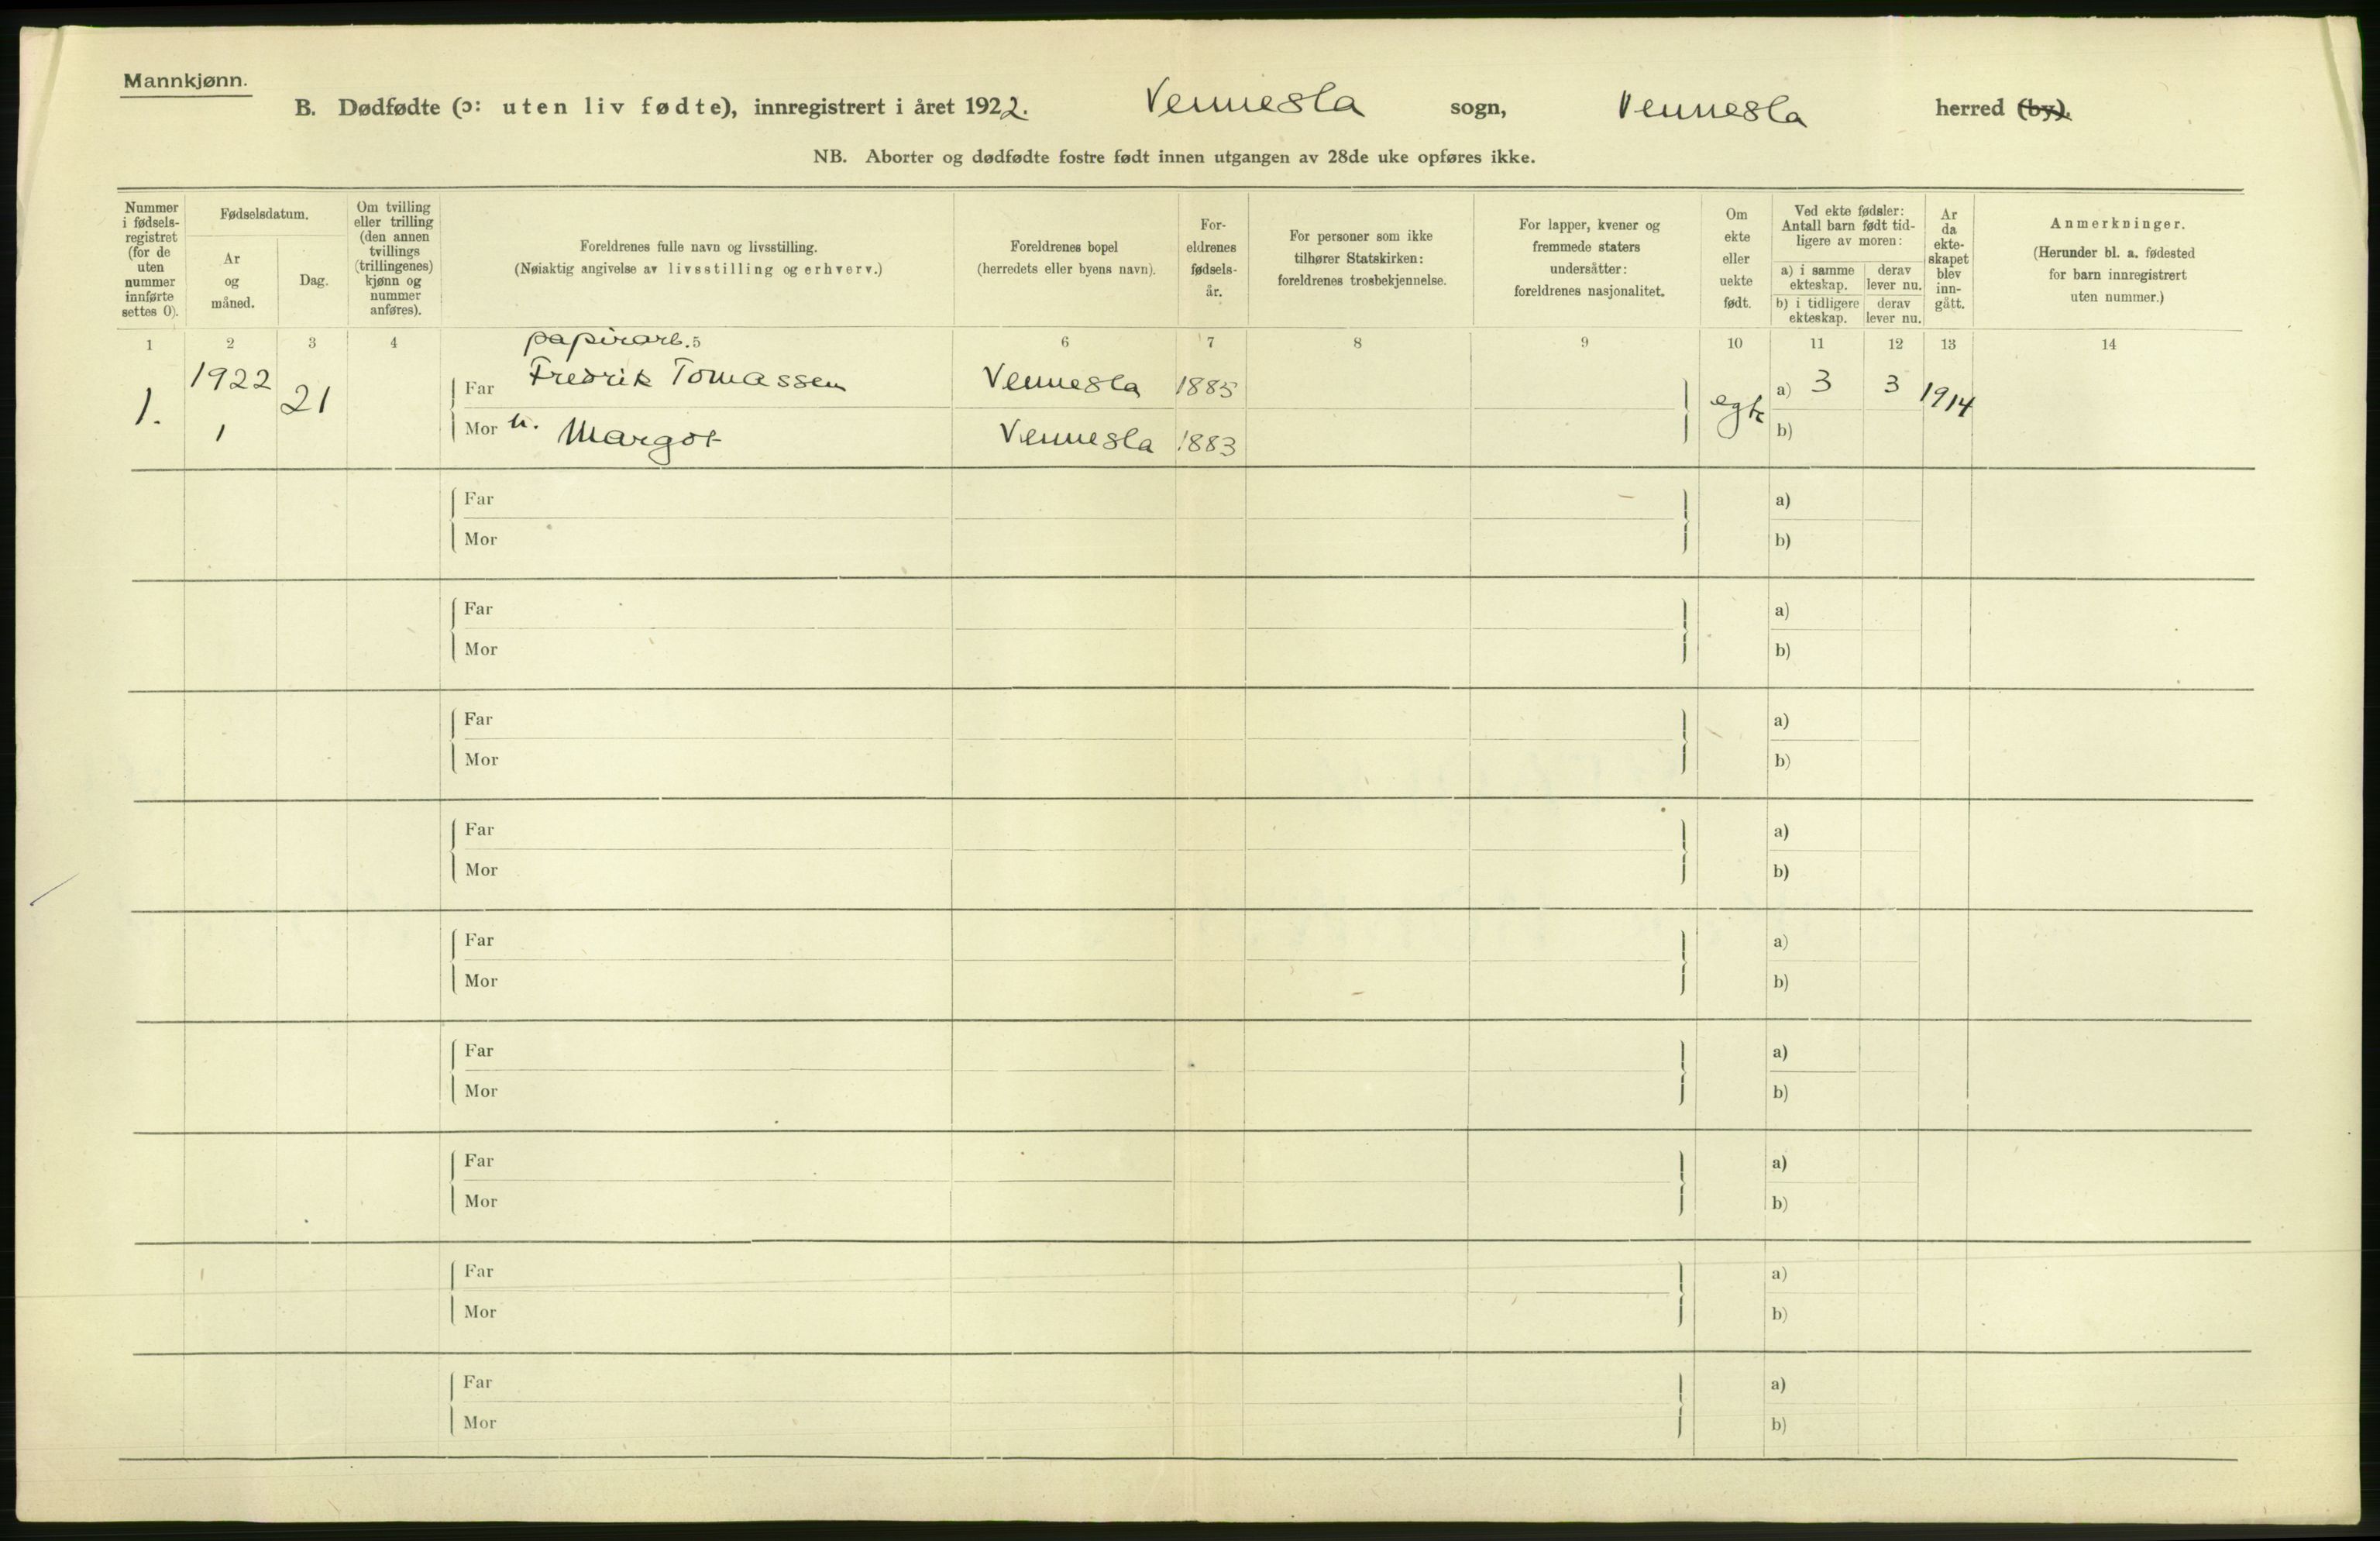 Mannkjønn.
B. Dødfødte (ɔ: uten liv fødte), innregistrert i året 1922. Vennesla sogn, Vennesla herred (by).
NB. Aborter og dødfødte fostre født innen utgangen av 28de uke opføres ikke.
Nummer i fødsels-registret (for de uten nummer innførte settes 0).
Fødselsdatum.
Ar og måned.
Dag.
Om tvilling eller trilling (den annen tvillings (trillingenes) kjønn og nummer anføres).
Foreldrenes fulle navn og livsstilling.
(Nøiaktig angivelse av livsstilling og erhverv.)
Foreldrenes bopel
(herredets eller byens navn).
For-eldrenes fødsels-år.
For personer som ikke tilhører Statskirken: foreldrenes trosbekjennelse.
For lapper, kvener og fremmede staters undersåtter: foreldrenes nasjonalitet.
Om ekte eller uekte født.
Ved ekte fødsler: Antall barn født tid-ligere av moren:
a) i samme ekteskap.
derav lever nu.
b) i tidligere ekteskap.
derav lever nu.
Ar da ekte-skapet blev inn-gått.
Anmerkninger.
(Herunder bl. a. fødested for barn innregistrert uten nummer.)
1 2 3 4 5 6 7 8 9 10 11 12 13 14
papirarb.
1. 1922 1 21
Far Fredrik Tomassen Vennesla 1885 egte a) 3 3 1914
Mor h. Margot Vennesla 1883 b)
Far a)
Mor b)
Far a)
Mor b)
Far a)
Mor b)
Far a)
Mor b)
Far a)
Mor b)
Far a)
Mor b)
Far a)
Mor b)
Far a)
Mor b)
Far a)
Mor b)